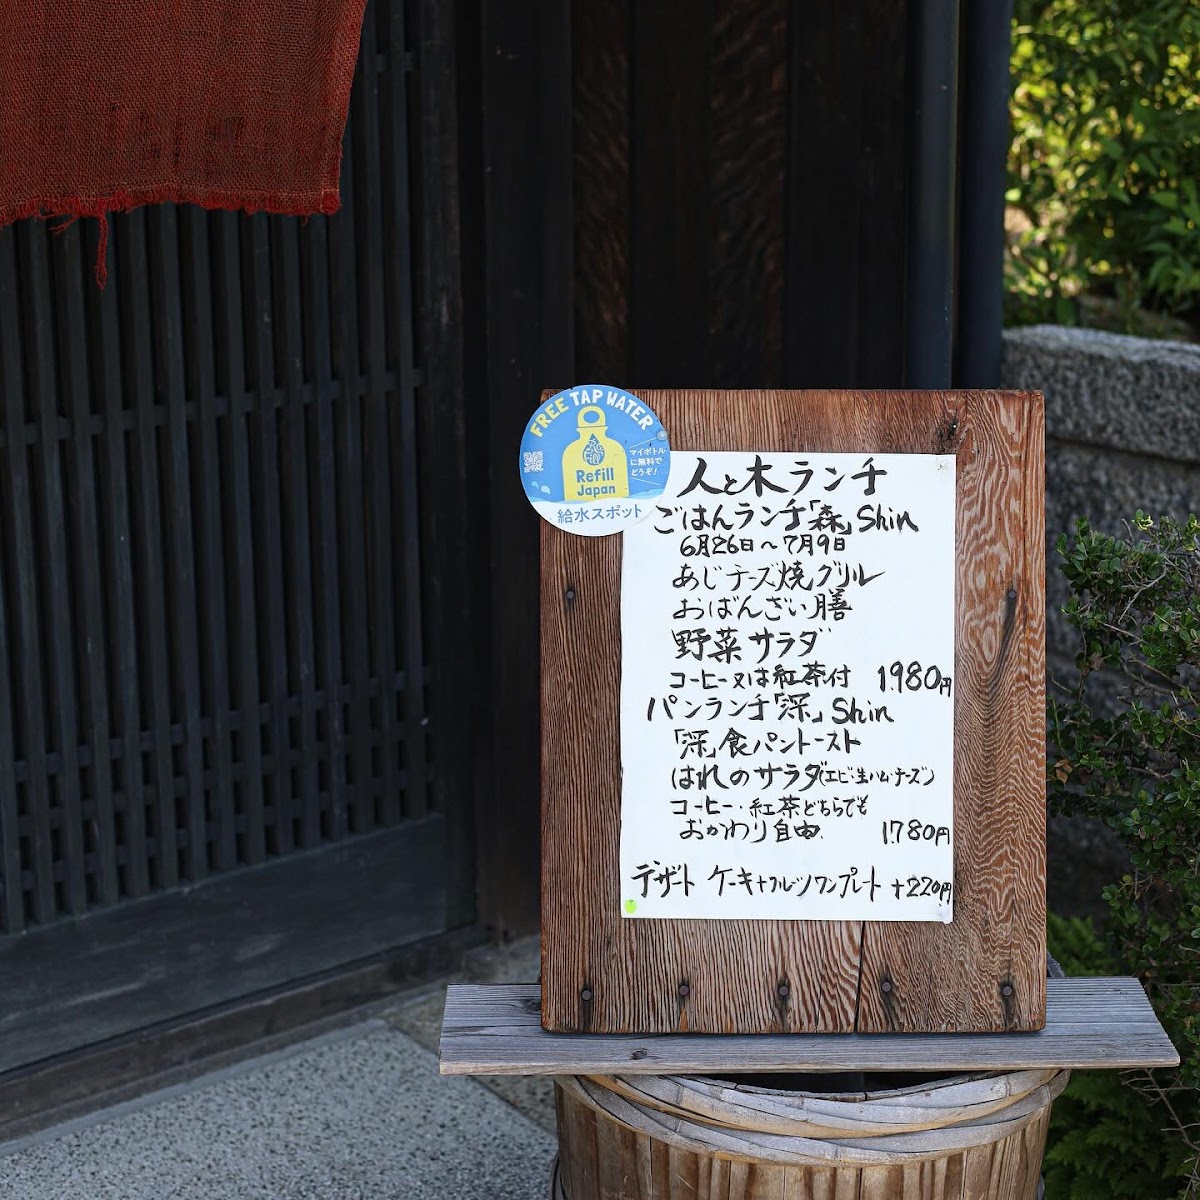 FREE TAP WATER
Refill
Japan
マイボトル
に無料で
どうぞ!
給水スポット
人と木ランチ
ごはんランチ「森」Shin
6月26日〜7月9日
あじチーズ焼グリル
おばんざい膳
野菜サラダ
コーヒー又は紅茶付 1980円
パンランチ「深」Shin
「深」食パントースト
はれのサラダ(エビ・生ハム・チーズ)
コーヒー・紅茶どちらでも
おかわり自由. 1780円
デザート ケーキ+フルーツワンプレート +220円